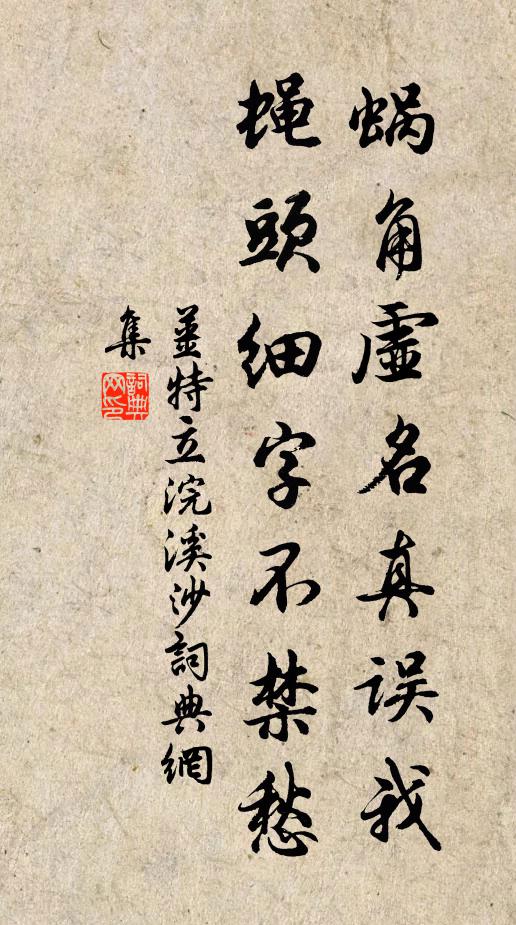 蜗角虚名真误我
蝇头细字不禁愁
姜特立浣溪沙詞典網
集
詞典网印